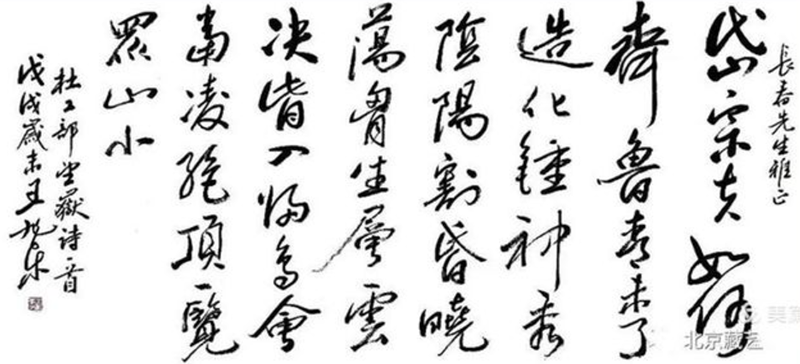 長春先生雅正
岱宗夫如何
齊魯青未了
造化鍾神秀
陰陽割昏曉
蕩胷生層雲
決眥入歸鳥會
當凌絕頂一覽
眾山小
杜工部望嶽诗一首
戊戌歲末王
美篇
北京藏